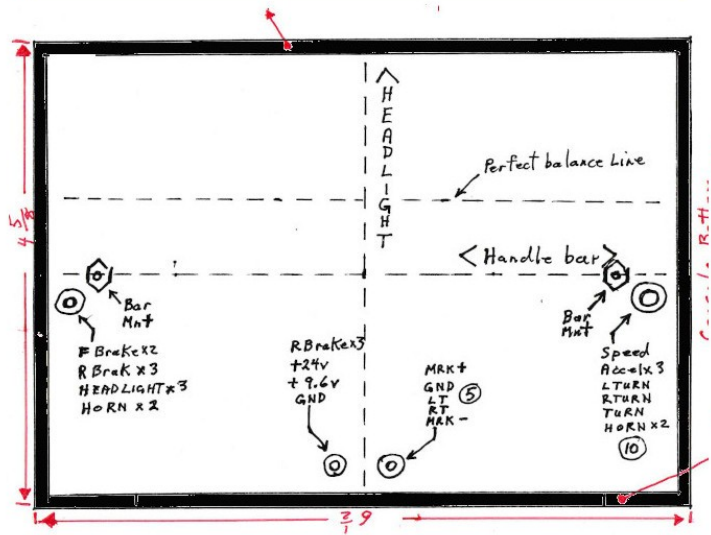 HEADLIGHT
Perfect balance Line
4 5/8
< Handle bar >
Bar
Mnt
Bar
Mnt
F Brake x2
R Brak x3
HEADLIGHT x3
HORN x 2
R Brake x3
+24v
+9.6v
GND
MRK+
GND
LT
RT
MRK-
5
Speed
Accel x 3
LTURN
RTURN
TURN
HORN x2
10
6 1/2